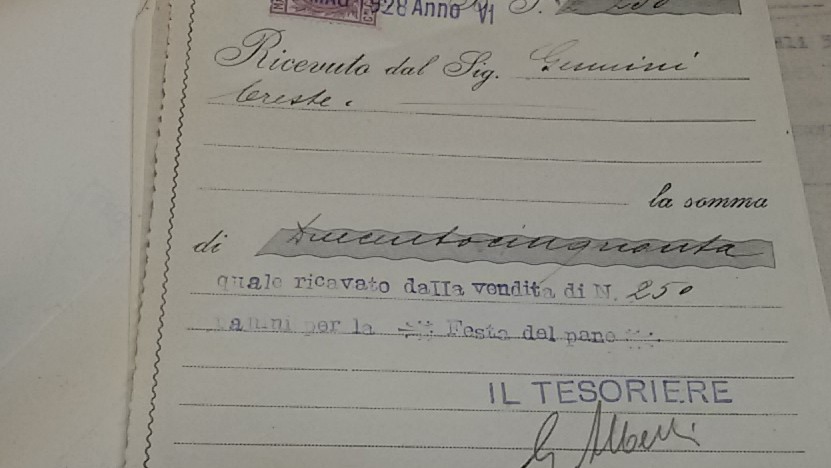 MAG 1928 Anno VI S. 250
Ricevuto dal Sig. Gemini
Oreste.
la somma
di Duecentocinquanta
quale ricavato dalla vendita di N. 250
panini per la Festa del pane
IL TESORIERE
G. Alberti